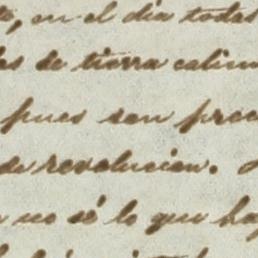 , en el dia todas
de tierra calien
pues son prec
de revolucion.
no sé lo que ha